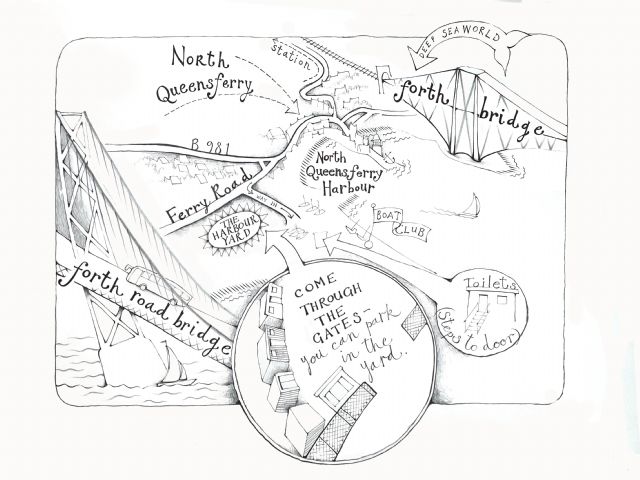 DEEP SEA WORLD
station
North
Queensferry
forth bridge
B 981
North
Queensferry
Harbour
Ferry Road
WAY IN
THE
HARBOUR
YARD
BOAT
CLUB
forth road bridge
COME
THROUGH
THE
GATES-
you can park
in the
yard.
Toilets
(Steps to door)